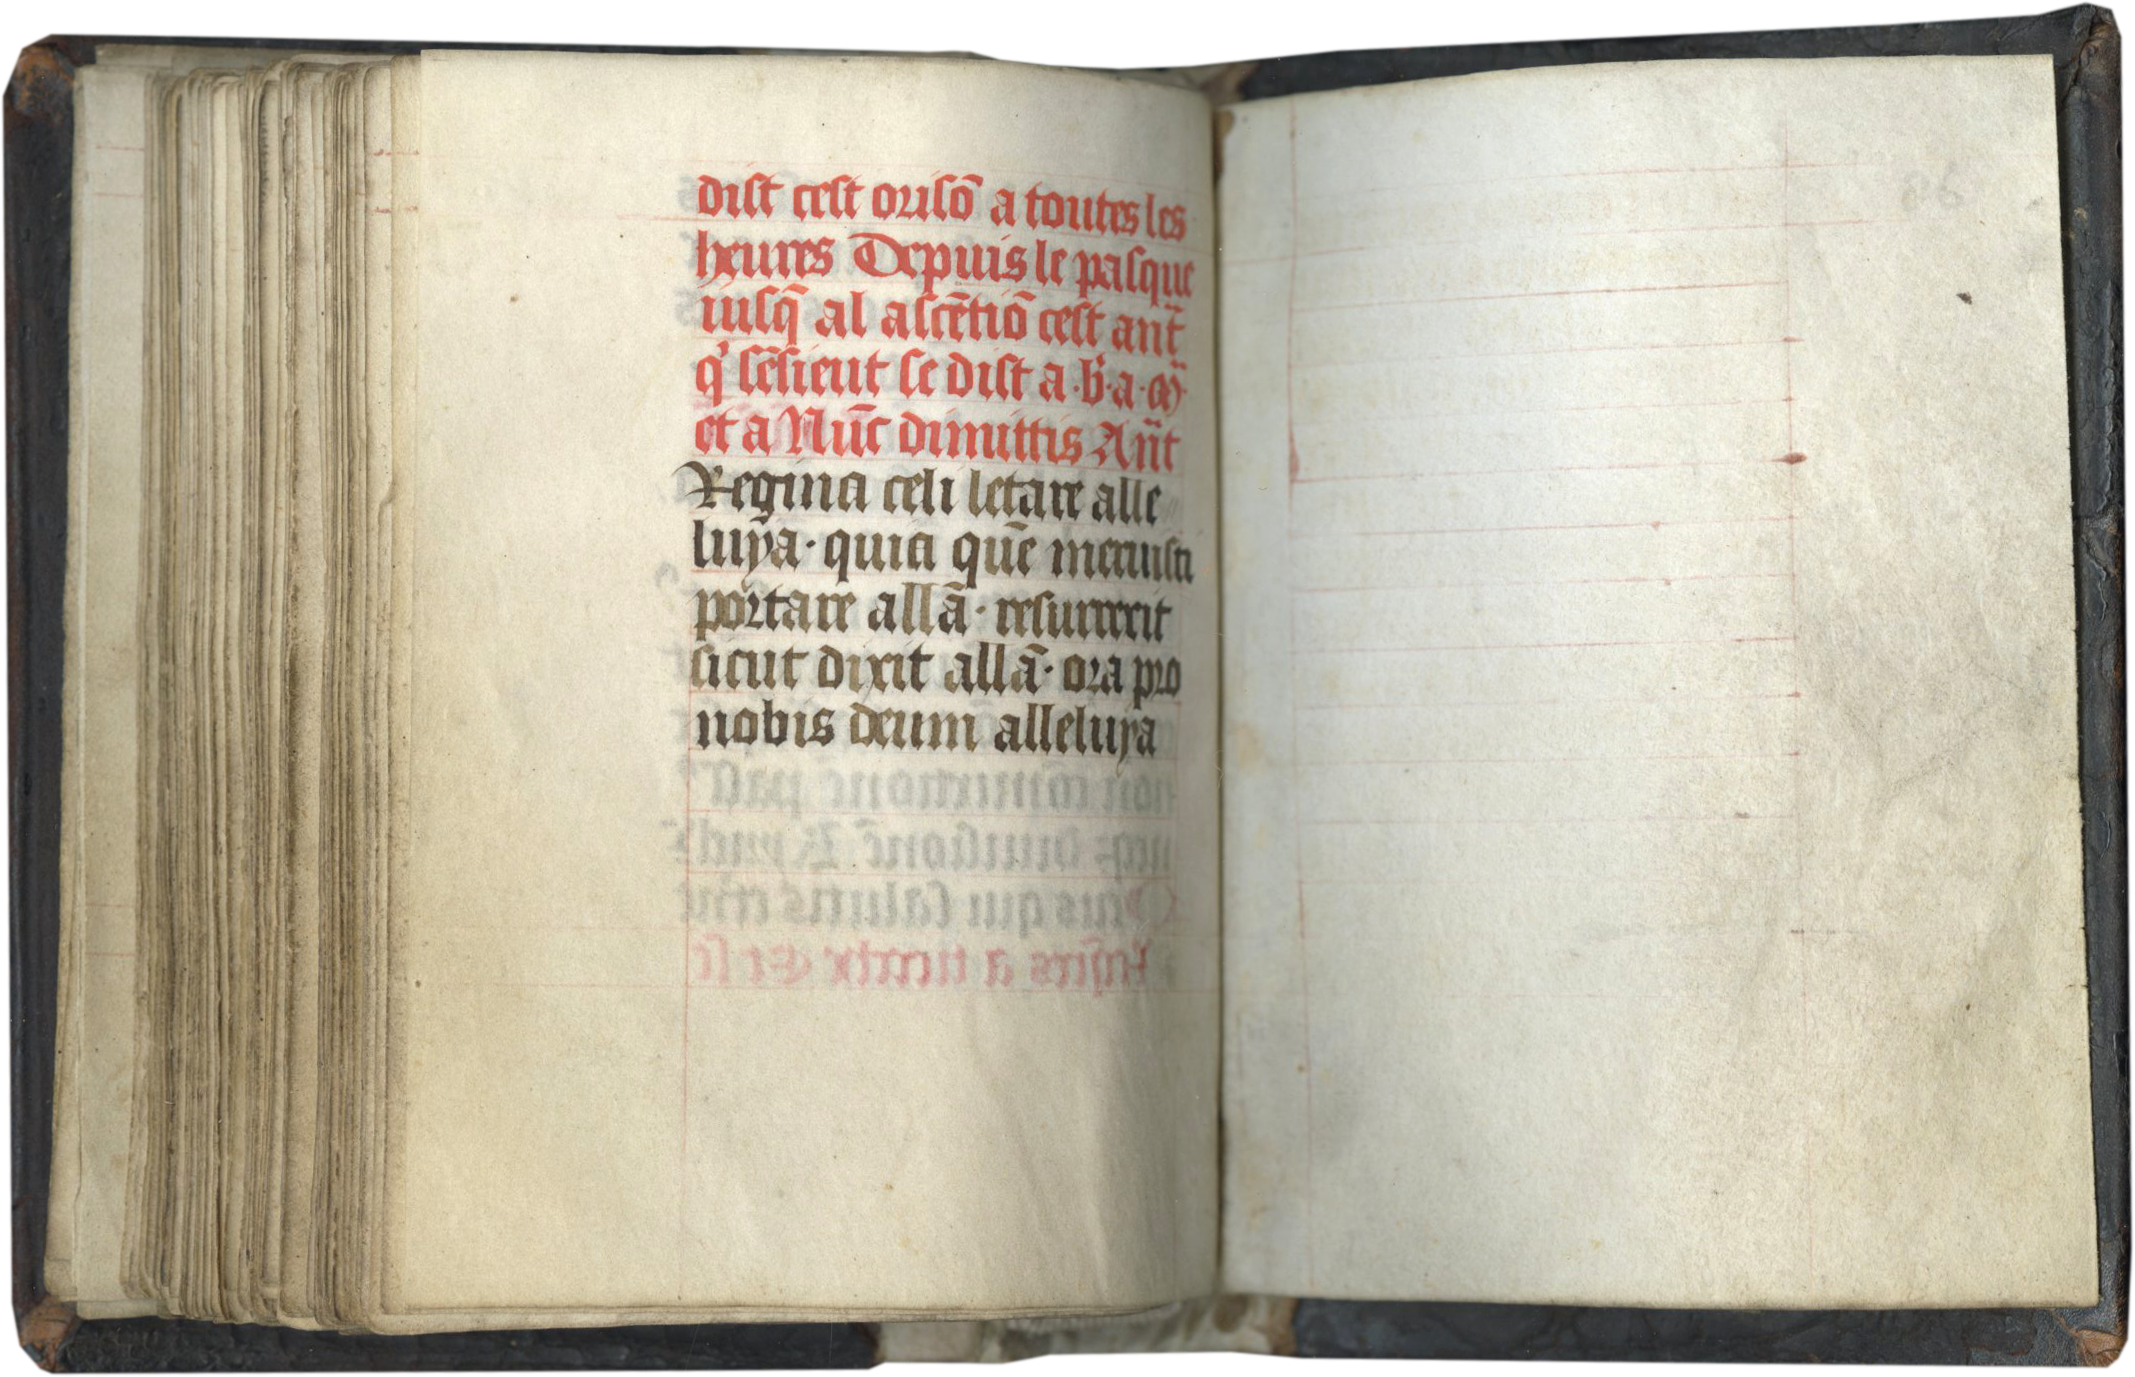 dist cest orisō a toutes les
heures Depuis le pasque
iusq̄ al ascētiō cest ant̄
qͥ sēsieut se dist a · b · a · 
et a Nūc dimittis Ant̄
Regina celi letare alle
luya · quia quē meruisti
portare allā · resurrexit
sicut dixit allā · ora pro
nobis deum alleluya